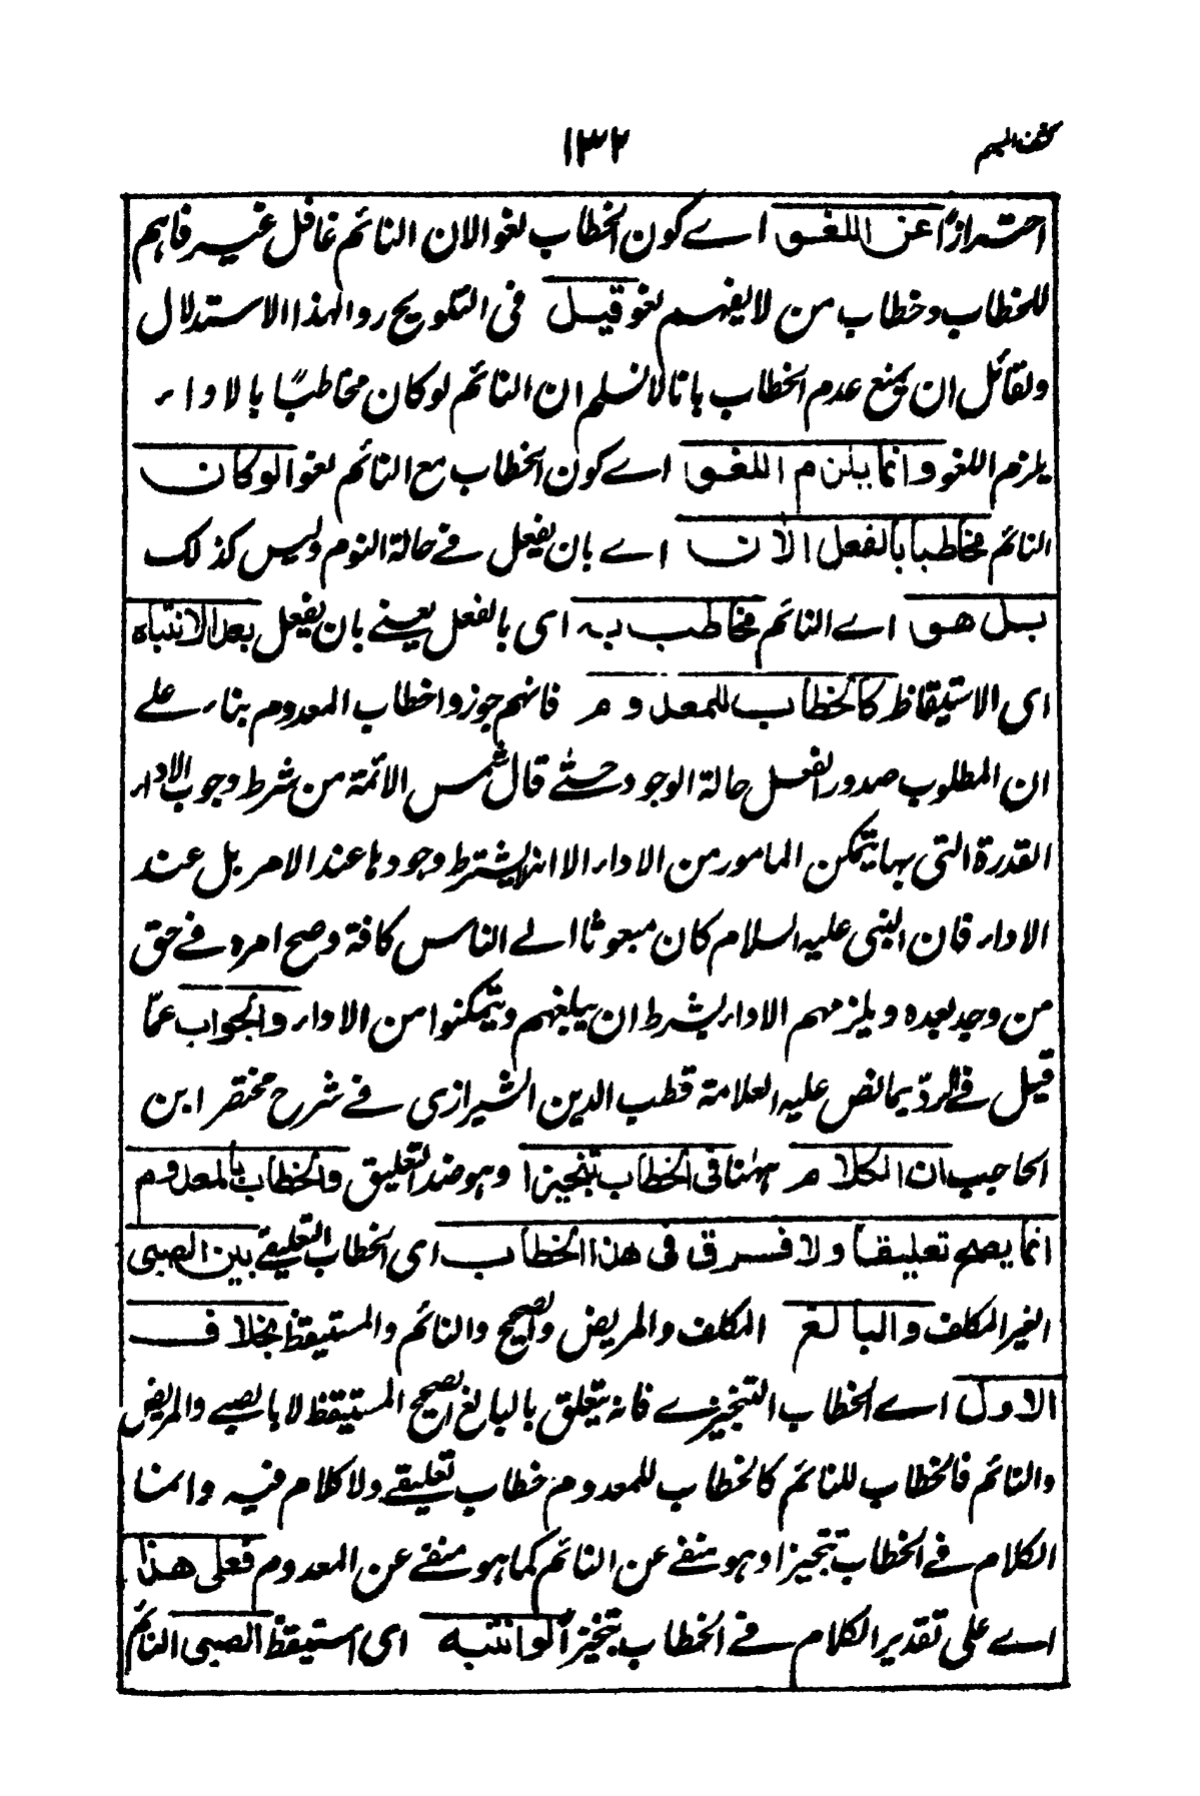 كشف المبهم
١٣٢
احترازًا عن اللغو اے كون الخطاب لغوا لان النائم غافل غير فاهم
للخطاب وخطاب من لا يفهم لغو قيل فى التلويح ردا لهذا الاستدلال
ولقائل ان يمنع عدم الخطاب بانا لا نسلم ان النائم لو كان مخاطبًا بالاداء
يلزم اللغو وانما يلزم اللغو اے كون الخطاب مع النائم لغوا لو كان
النائم مخاطبا بالفعل الآن اے بان يفعل فے حالة النوم وليس كذلك
بل هو اے النائم مخاطب به اى بالفعل يعنے بان يفعل بعد الانتباه
اى الاستيقاظ كالخطاب للمعدوم فانهم جوزوا خطاب المعدوم بناء علے
ان المطلوب صدور الفعل حالة الوجود حتے قال شمس الائمة من شرط وجوب الاداء
القدرة التى بها يتمكن المامور من الاداء الا انه لا يشترط وجودها عند الامر بل عند
الاداء فان النبى عليه السلام كان مبعوثا الے الناس كافة وصح امره فے حق
من وجد بعده ويلزمهم الاداء بشرط ان يبلغهم ويتمكنوا من الاداء والجواب عمّا
قيل فے الردّ بما نص عليه العلامة قطب الدين الشيرازى فے شرح مختصر ابن
الحاجب ان الكلام ههنا فى الخطاب تنجيزا وهو ضد التعليق والخطاب بالمعدوم
انما يصح تعليقا ولا فرق فى هذا الخطاب اى الخطاب التعليقے بين الصبى
الغير المكلف والبالغ المكلف والمريض والصحيح والنائم والمستيقظ بخلاف
الاول اے الخطاب التنجيزے فانه يتعلق بالبالغ الصحيح المستيقظ لا بالصبے والمريض
والنائم فالخطاب للنائم كالخطاب للمعدوم خطاب تعليقے ولا كلام فيه وانما
الكلام فے الخطاب تنجيزا وهو منفے عن النائم كما هو منفے عن المعدوم فعلى هذا
اے على تقدير الكلام فے الخطاب تنجيزًا لو انتبه اى استيقظ الصبى النائم